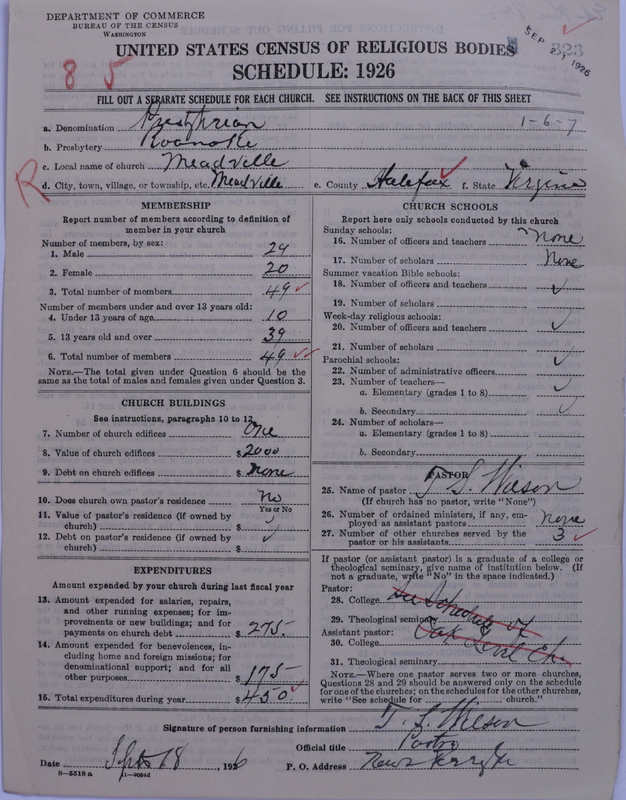 DEPARTMENT OF COMMERCE
BUREAU OF THE CENSUS
WASHINGTON
SEP 21 1926
323
UNITED STATES CENSUS OF RELIGIOUS BODIES
SCHEDULE: 1926
8 5
FILL OUT A SEPARATE SCHEDULE FOR EACH CHURCH. SEE INSTRUCTIONS ON THE BACK OF THIS SHEET
1-6-7
a. Denomination Presbyterian
b. Presbytery Roanoke
c. Local name of church Meadville
R
d. City, town, village, or township, etc. Meadville e. County Halifax f. State Virginia
MEMBERSHIP
Report number of members according to definition of
member in your church
Number of members, by sex:
1. Male 29
2. Female 20
3. Total number of members 49
Number of members under and over 13 years old:
4. Under 13 years of age 10
5. 13 years old and over 39
6. Total number of members 49
NOTE.—The total given under Question 6 should be
the same as the total of males and females given under Question 3.
CHURCH BUILDINGS
See instructions, paragraphs 10 to 12
7. Number of church edifices One
8. Value of church edifices $ 2000
9. Debt on church edifices $ None
10. Does church own pastor's residence No
Yes or No
11. Value of pastor's residence (if owned by
church) $
12. Debt on pastor's residence (if owned by
church) $
EXPENDITURES
Amount expended by your church during last fiscal year
13. Amount expended for salaries, repairs,
and other running expenses; for im-
provements or new buildings; and for
payments on church debt $ 275.
14. Amount expended for benevolences, in-
cluding home and foreign missions; for
denominational support; and for all
other purposes $ 175
15. Total expenditures during year $ 450
CHURCH SCHOOLS
Report here only schools conducted by this church
Sunday schools:
16. Number of officers and teachers None
17. Number of scholars None
Summer vacation Bible schools:
18. Number of officers and teachers
19. Number of scholars
Week-day religious schools:
20. Number of officers and teachers
21. Number of scholars
Parochial schools:
22. Number of administrative officers
23. Number of teachers—
a. Elementary (grades 1 to 8)
b. Secondary
24. Number of scholars—
a. Elementary (grades 1 to 8)
b. Secondary
PASTOR
25. Name of pastor T. S. Wilson
(If church has no pastor, write "None")
26. Number of ordained ministers, if any, em-
ployed as assistant pastors None
27. Number of other churches served by the
pastor or his assistants 3
If pastor (or assistant pastor) is a graduate of a college or
theological seminary, give name of institution below. (If
not a graduate, write "No" in the space indicated.)
Pastor:
28. College See Schedule of
29. Theological seminary
Assistant pastor: Oak Level Ch.
30. College
31. Theological seminary
NOTE.—Where one pastor serves two or more churches,
Questions 28 and 29 should be answered only on the schedule
for one of the churches; on the schedules for the other churches,
write "See schedule for church."
Signature of person furnishing information T. S. Wilson
Official title Pastor
Date Sept 18, 1926 P. O. Address
8-5518 a